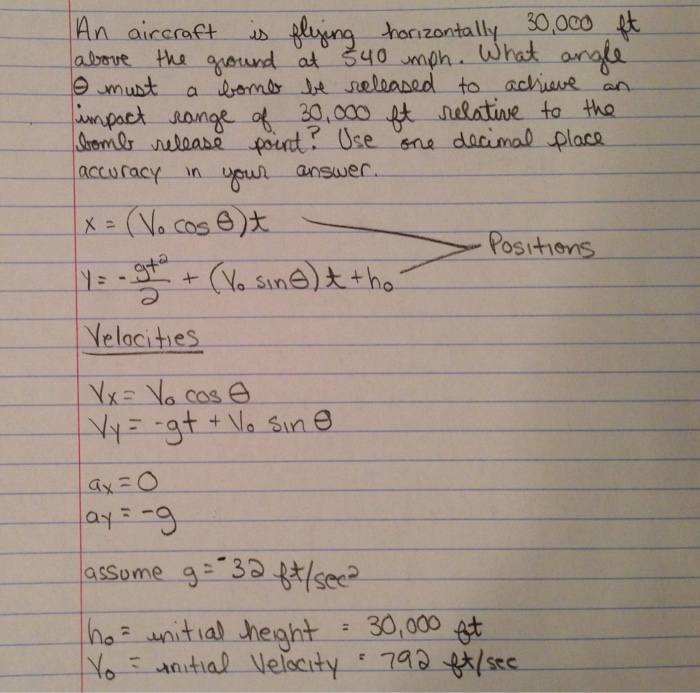 An aircraft is flying horizontally 30,000 ft
above the ground at 540 mph. What angle
θ must a bomb be released to achieve an
impact range of 30,000 ft relative to the
bomb release point? Use one decimal place
accuracy in your answer.
x = (V₀ cos θ)t
Positions
y = -gt²/2 + (V₀ sinθ)t + h₀
Velocities
Vx = V₀ cos θ
Vy = -gt + V₀ sin θ
ax = 0
ay = -g
assume g = -32 ft/sec²
h₀ = initial height = 30,000 ft
V₀ = initial Velocity = 792 ft/sec